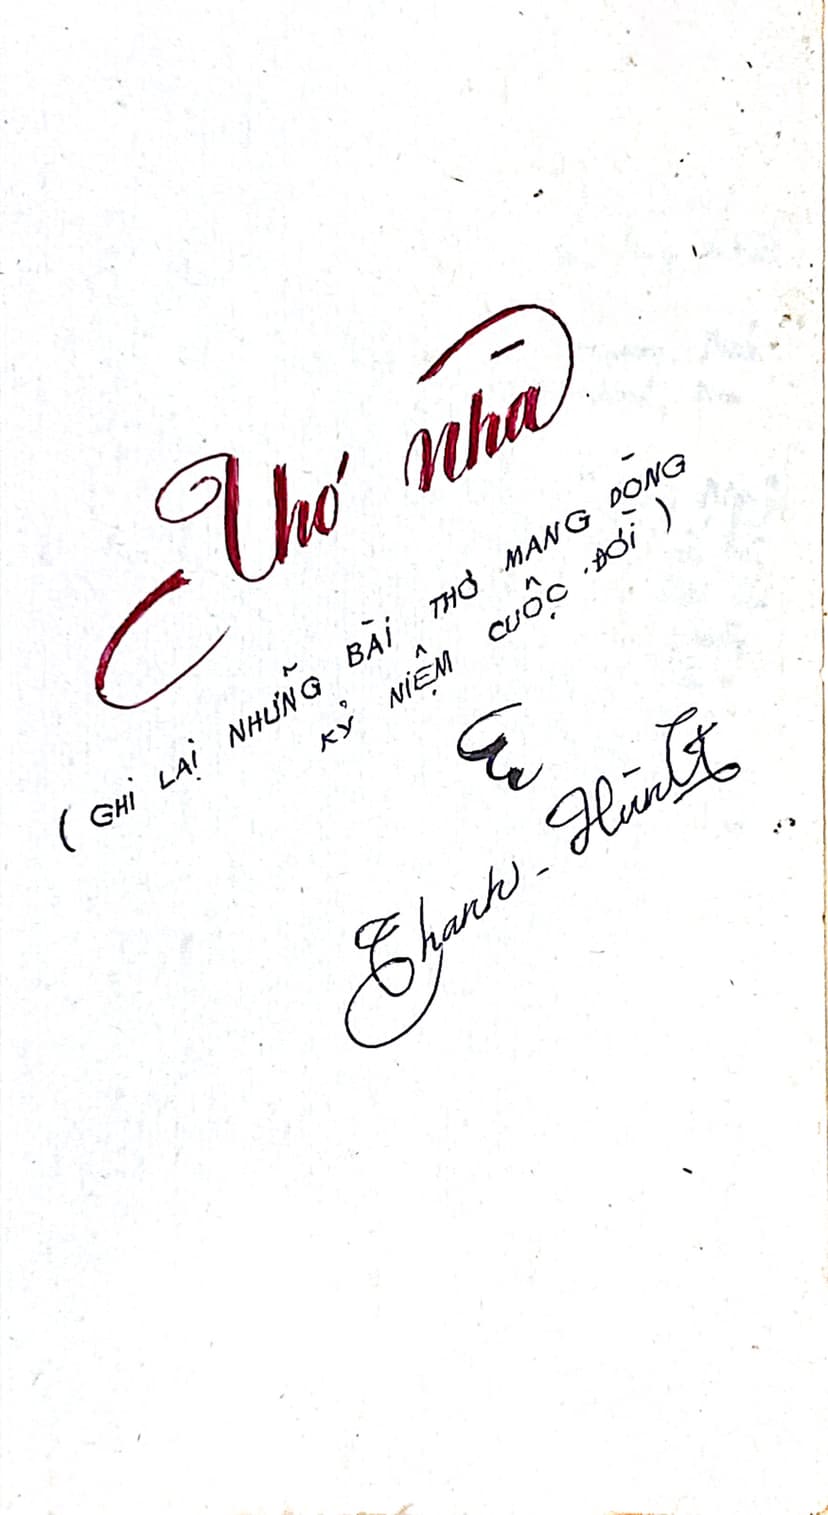 Thơ nhà
( GHI LẠI NHỮNG BÀI THƠ MANG DÒNG
KỶ NIỆM CUỘC ĐỜI )
Thanh - Hùng